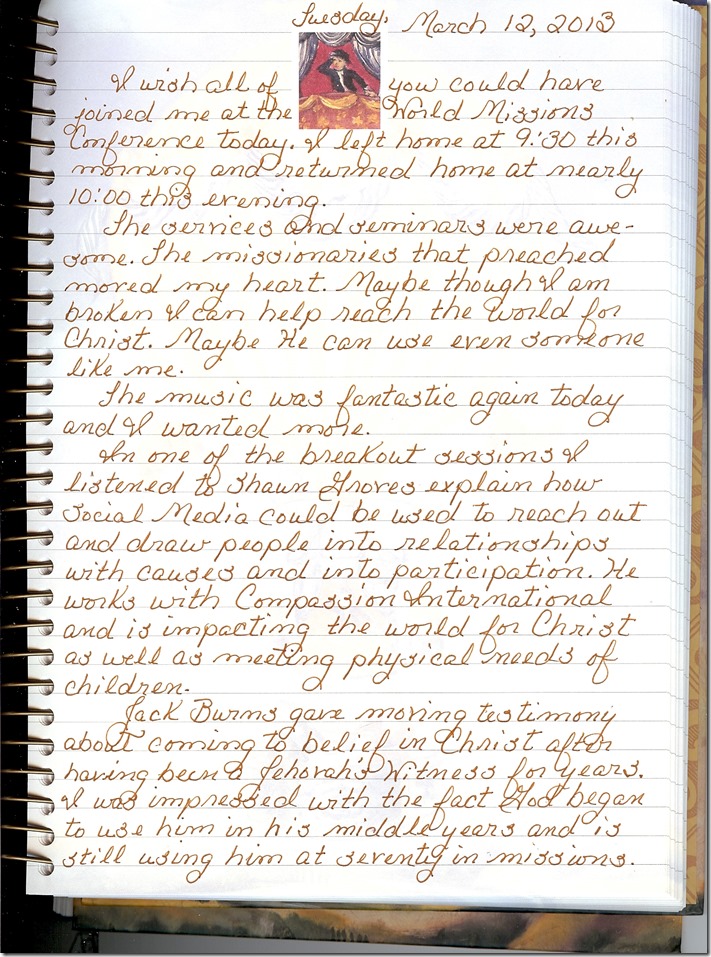 Tuesday, March 12, 2013
I wish all of you could have
joined me at the World Missions
Conference today. I left home at 9:30 this
morning and returned home at nearly
10:00 this evening.
The services and seminars were awe-
some. The missionaries that preached
moved my heart. Maybe though I am
broken I can help reach the world for
Christ. Maybe He can use even someone
like me.
The music was fantastic again today
and I wanted more.
In one of the breakout sessions I
listened to Shaun Groves explain how
Social Media could be used to reach out
and draw people into relationships
with causes and into participation. He
works with Compassion International
and is impacting the world for Christ
as well as meeting physical needs of
children.
Jack Burns gave moving testimony
about coming to belief in Christ after
having been a Jehovah's Witness for years.
I was impressed with the fact God began
to use him in his middle years and is
still using him at seventy in missions.